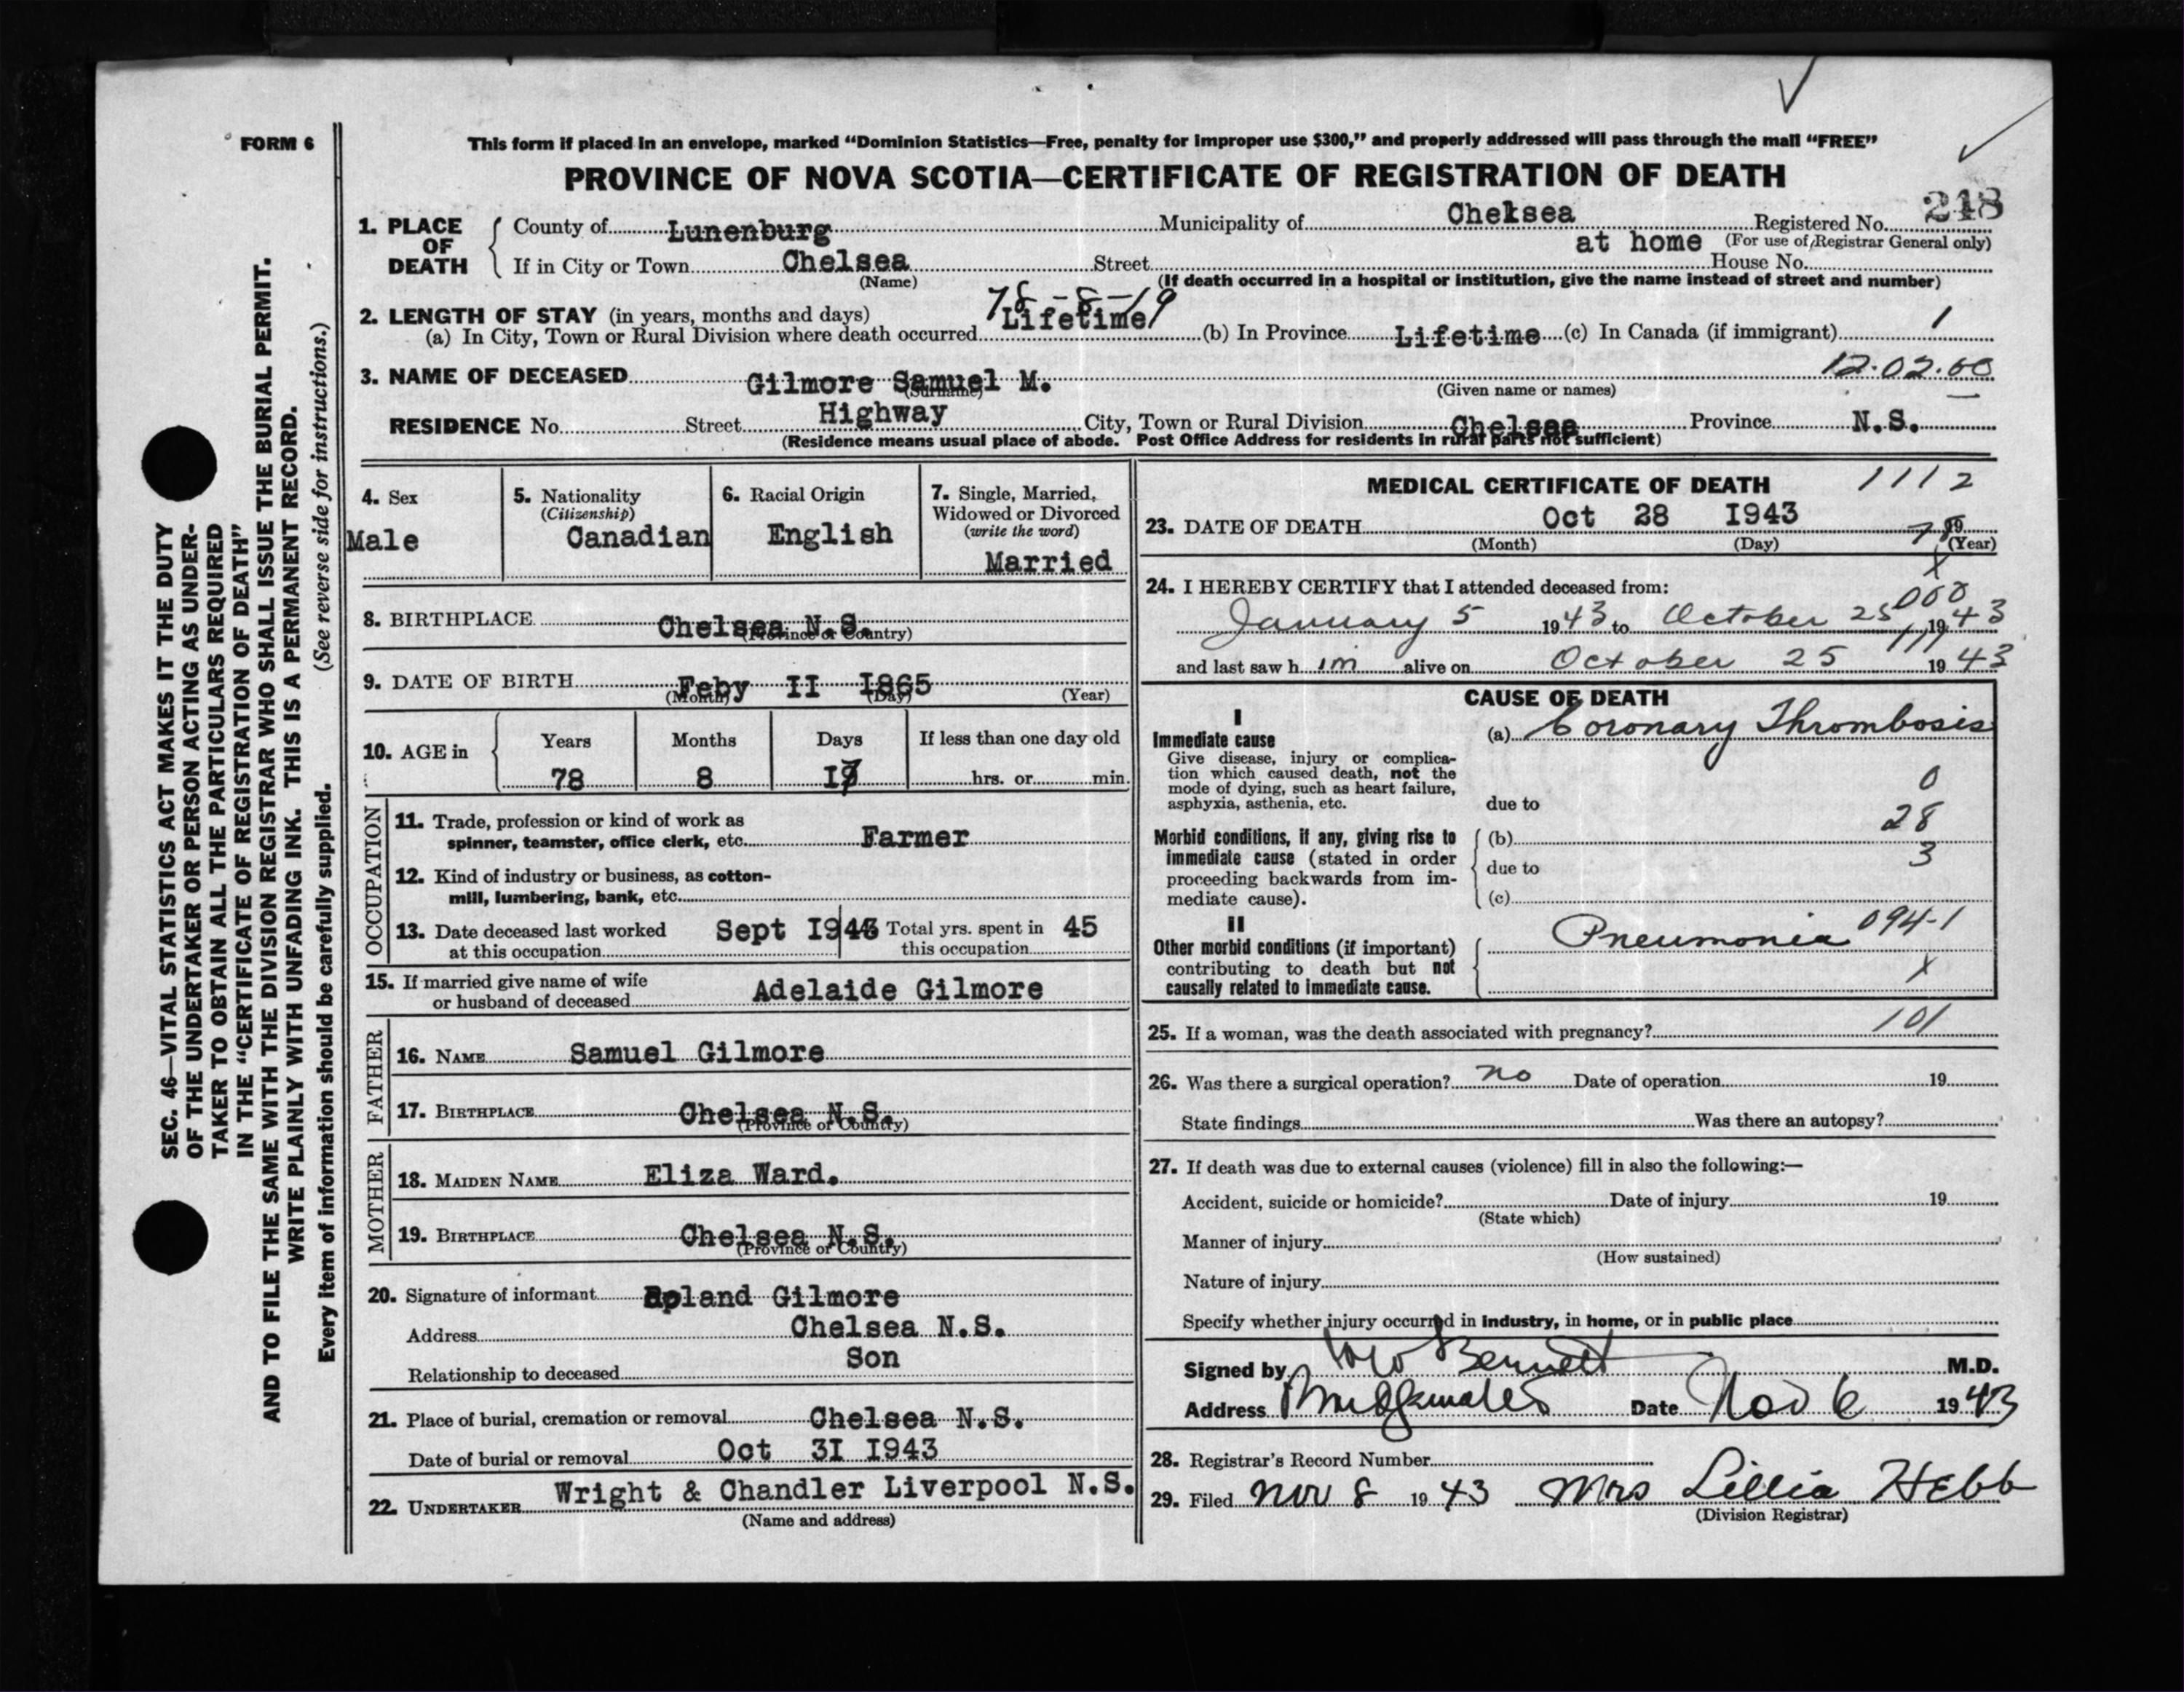 FORM 6
This form if placed in an envelope, marked “Dominion Statistics—Free, penalty for improper use $300,” and properly addressed will pass through the mail “FREE”
PROVINCE OF NOVA SCOTIA—CERTIFICATE OF REGISTRATION OF DEATH
1. PLACE OF DEATH { County of Lunenburg Municipality of Chelsea Registered No. 248
at home (For use of Registrar General only)
If in City or Town Chelsea Street House No.
(Name) (If death occurred in a hospital or institution, give the name instead of street and number)
2. LENGTH OF STAY (in years, months and days) 78-8-19
(a) In City, Town or Rural Division where death occurred Lifetime (b) In Province Lifetime (c) In Canada (if immigrant) 1
3. NAME OF DECEASED Gilmore Samuel M. 12.02.60
(Surname) (Given name or names)
RESIDENCE No. Street Highway City, Town or Rural Division Chelsea Province N.S.
(Residence means usual place of abode. Post Office Address for residents in rural parts not sufficient)
4. Sex
Male
5. Nationality
(Citizenship)
Canadian
6. Racial Origin
English
7. Single, Married,
Widowed or Divorced
(write the word)
Married
8. BIRTHPLACE Chelsea N.S.
(Province or Country)
9. DATE OF BIRTH Feby II I865
(Month) (Day) (Year)
10. AGE in { Years Months Days If less than one day old
78 8 I7 hrs. or min.
OCCUPATION
11. Trade, profession or kind of work as
spinner, teamster, office clerk, etc. Farmer
12. Kind of industry or business, as cotton-
mill, lumbering, bank, etc.
13. Date deceased last worked Sept I943 Total yrs. spent in 45
at this occupation this occupation
15. If married give name of wife
or husband of deceased Adelaide Gilmore
FATHER
16. NAME Samuel Gilmore
17. BIRTHPLACE Chelsea N.S.
(Province or Country)
MOTHER
18. MAIDEN NAME Eliza Ward.
19. BIRTHPLACE Chelsea N.S.
(Province or Country)
20. Signature of informant Roland Gilmore
Address Chelsea N.S.
Relationship to deceased Son
21. Place of burial, cremation or removal Chelsea N.S.
Date of burial or removal Oct 3I I943
22. UNDERTAKER Wright & Chandler Liverpool N.S.
(Name and address)
MEDICAL CERTIFICATE OF DEATH 1112
23. DATE OF DEATH Oct 28 I943 19
78
(Month) (Day) (Year)
X
24. I HEREBY CERTIFY that I attended deceased from:
000
January 5 1943 to October 25 1943
111
and last saw h im alive on October 25 1943
CAUSE OF DEATH
I
Immediate cause (a) Coronary Thrombosis
Give disease, injury or complica-
tion which caused death, not the
mode of dying, such as heart failure,
asphyxia, asthenia, etc. due to
0
28
3
Morbid conditions, if any, giving rise to (b)
immediate cause (stated in order due to
proceeding backwards from im-
mediate cause). (c)
II
Other morbid conditions (if important) Pneumonia 094-1
contributing to death but not X
causally related to immediate cause.
25. If a woman, was the death associated with pregnancy? 101
26. Was there a surgical operation? no Date of operation 19
State findings Was there an autopsy?
27. If death was due to external causes (violence) fill in also the following:—
Accident, suicide or homicide? Date of injury 19
(State which)
Manner of injury
(How sustained)
Nature of injury
Specify whether injury occurred in industry, in home, or in public place
Signed by Bennett M.D.
Address Bridgewater Date Nov 6 1943
28. Registrar's Record Number
29. Filed Nov 8 1943 Mrs Lillia Hebb
(Division Registrar)
SEC. 46—VITAL STATISTICS ACT MAKES IT THE DUTY
OF THE UNDERTAKER OR PERSON ACTING AS UNDER-
TAKER TO OBTAIN ALL THE PARTICULARS REQUIRED
IN THE “CERTIFICATE OF REGISTRATION OF DEATH”
AND TO FILE THE SAME WITH THE DIVISION REGISTRAR WHO SHALL ISSUE THE BURIAL PERMIT.
WRITE PLAINLY WITH UNFADING INK. THIS IS A PERMANENT RECORD.
Every item of information should be carefully supplied. (See reverse side for instructions.)